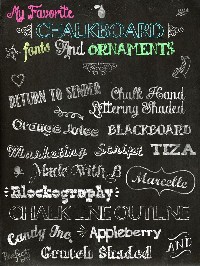 My Favorite
CHALKBOARD
fonts And ORNAMENTS
RETURN TO SENDER
Chalk Hand
Lettering Shaded
Orange Juice
BLACKBOARD
Marketing Script
TIZA
Made With B
Marcelle
Blockography
CHALK LINE OUTLINE
Candy Inc.
Appleberry
AND
Crutch Shaded